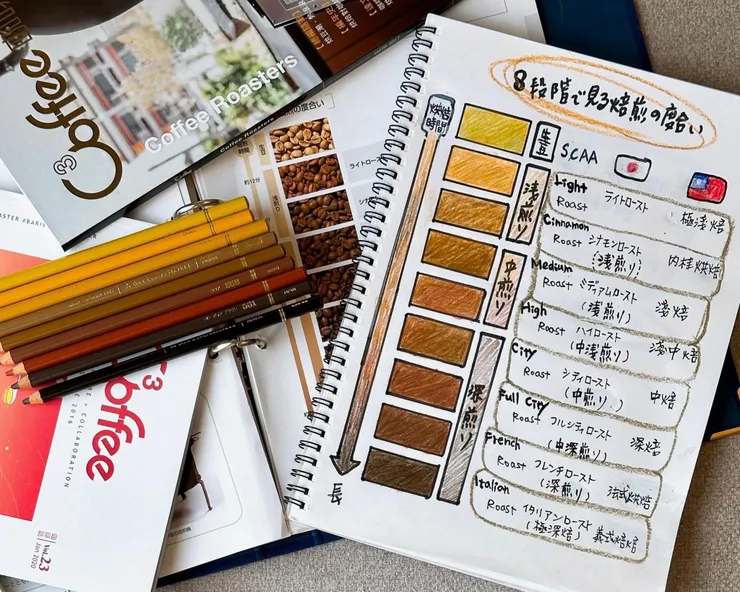 Coffee
Coffee Roasters
Coffee Roasters
の度合い
ライトロース
約12分
シナ
ASTER #BARIS
Coffee
COLLABORATION
Vol.23
Jan 2020
8段階で見る焙煎の度合い
烘焙
時間
長
生豆
浅煎り
中煎り
深煎り
SCAA
Light
Roast ライトロースト 極浅焙
Cinnamon
Roast シナモンロースト
(浅煎り) 內桂烘焙
Medium
Roast ミディアムロースト
(浅煎り) 淺焙
High
Roast ハイロースト
(中浅煎り) 淺中焙
City
Roast シティロースト
(中煎り) 中焙
Full City
Roast フルシティロースト
(中深煎り) 深焙
French
Roast フレンチロースト
(深煎り) 法式烘焙
Italian
Roast イタリアンロースト
(極深焙) 義式焙焙